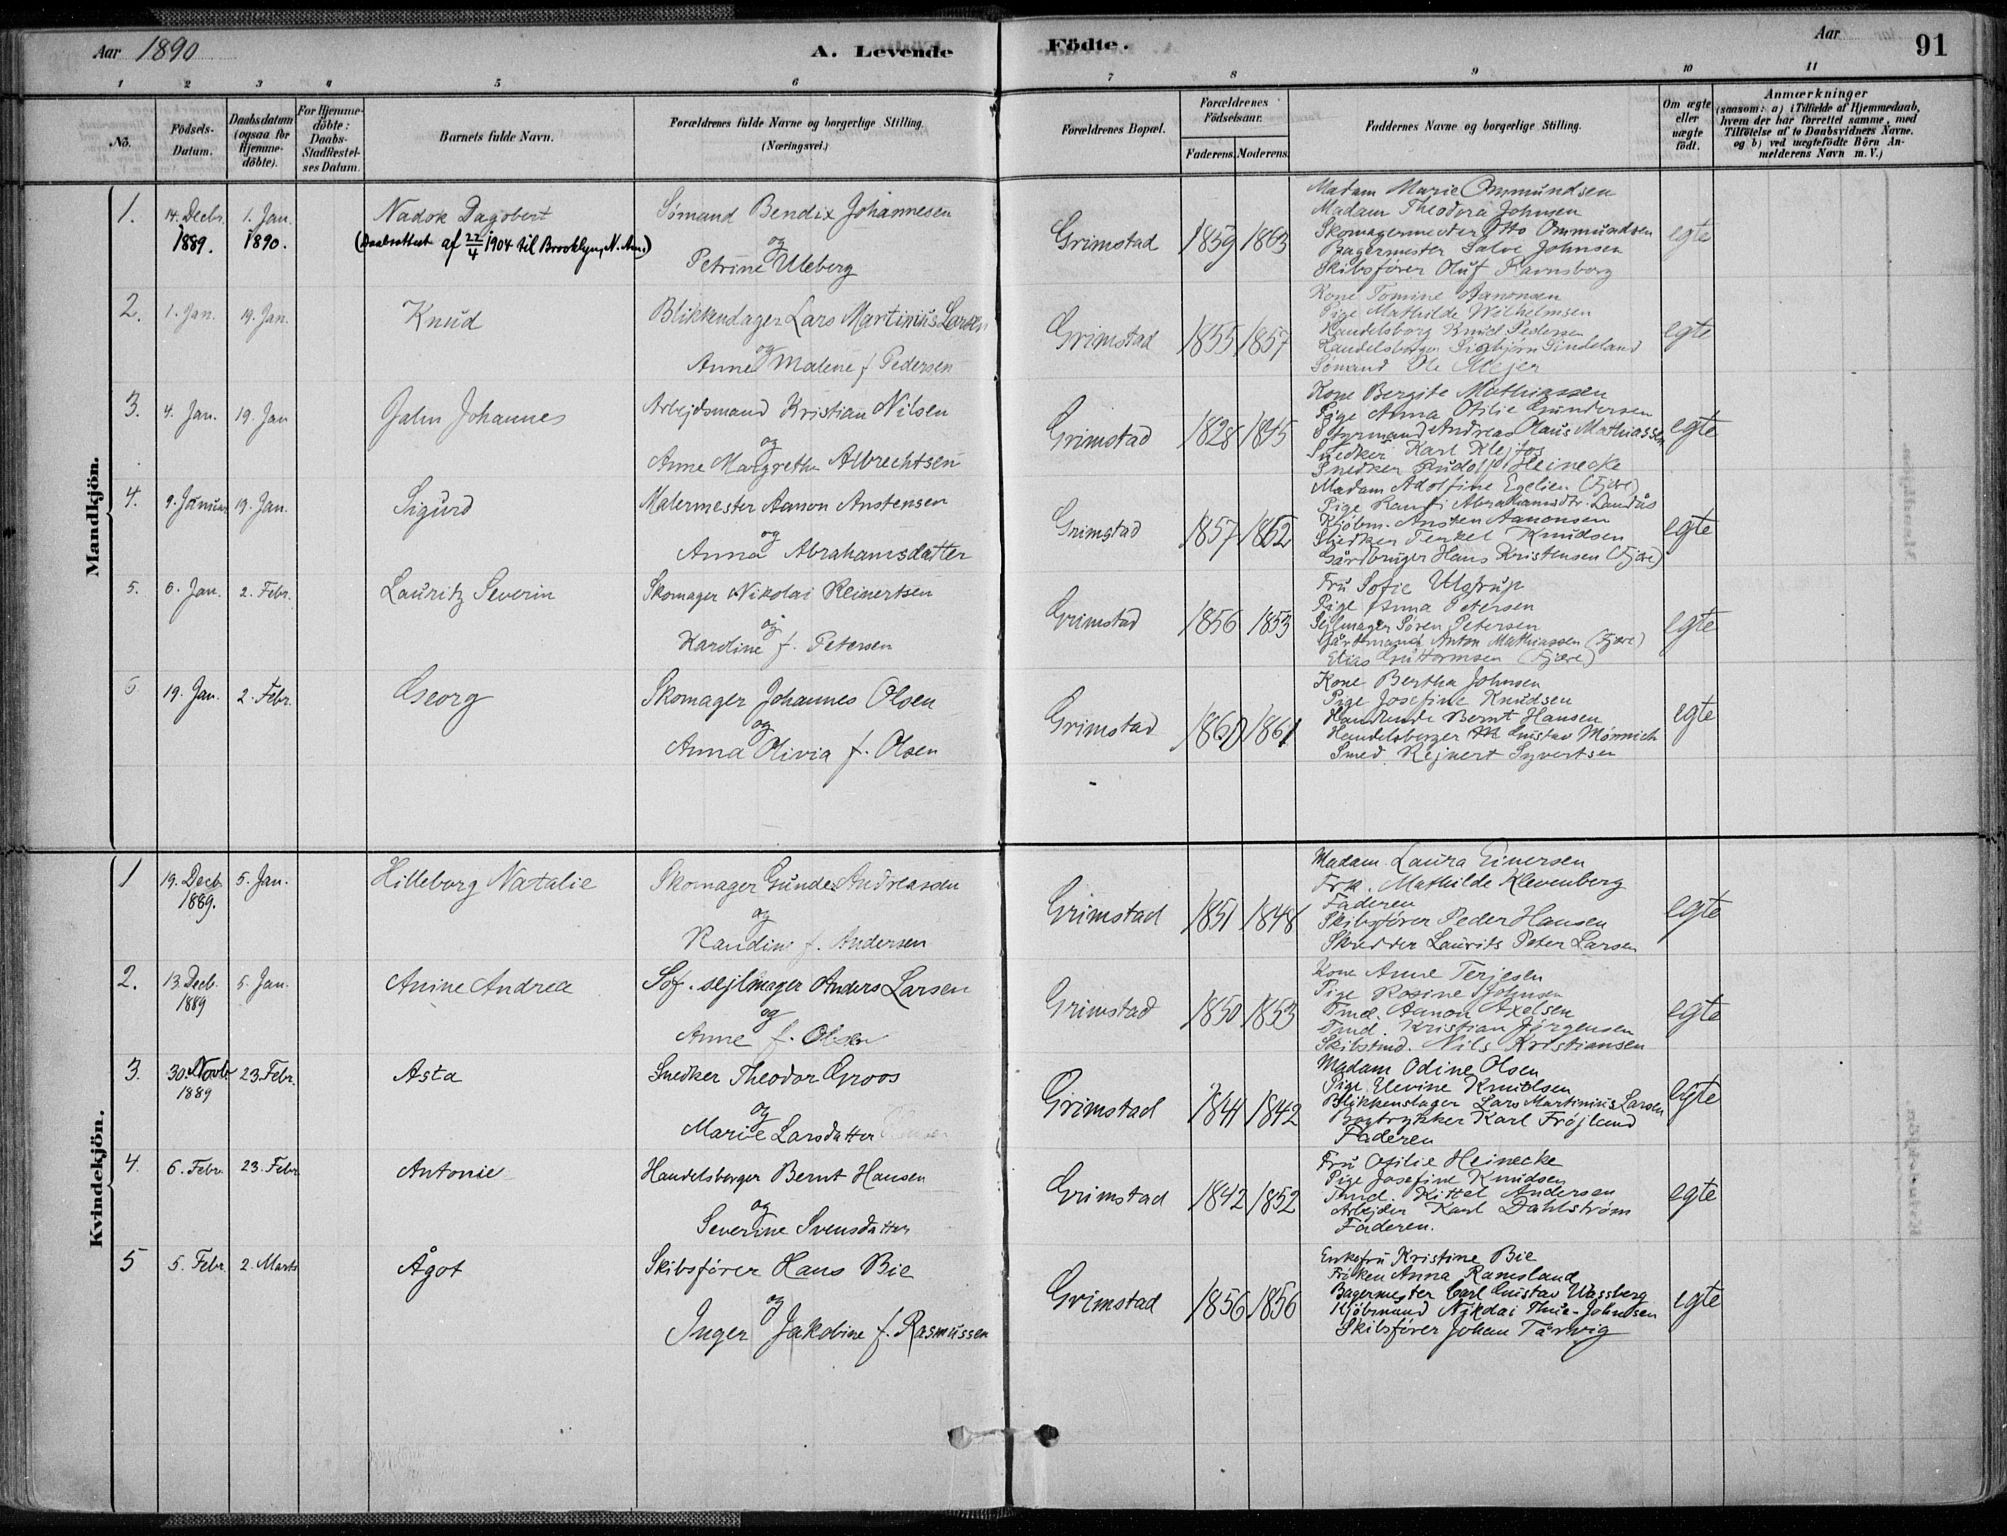 Aar 1890
A. Levende
Födte.
Aar
91
1 2 3 4 5 6 7 8 9 10 11
Nö.
Födsels-Datum.
Daabsdatum (ogsaa for Hjemme-döbte).
For Hjemme-döbte: Daabs-Stadfæstel-ses Datum.
Barnets fulde Navn.
Forældrenes fulde Navne og borgerlige Stilling.
(Næringsvei.)
Forældrenes Bopæl.
Forældrenes Födselsaar.
Faderens. Moderens.
Faddernes Navne og borgerlige Stilling.
Om ægte eller uægte födt.
Anmærkninger
(saasom: a) i Tilfælde af Hjemmedaab, hvem der har forrettet samme, med Tilföielse af to Daabsvidners Navne. og b) ved uægtefödte Börn An-melderens Navn m. V.)
Mandkjön.
1. 14. Decbr. 1889. 1. Jan. 1890. Nadok Dagobert
(Daabsattest af 22/4 1904 til Brooklyn, N. Am.)
Sømand Bendix Johannesen
og
Petrine Uleberg
Grimstad 1859 1863
Madam Marie Ommundsen
Madam Theodora Johnsen
Skomagermester Otto Ommundsen
Bagermester Salve Johnsen
Skibsfører Oluf Ravnsborg
egte
2. 1. Jan. 19. Jan. Knud
Blikkenslager Lars Martinius Larsen
og
Anne Malene f. Pedersen
Grimstad 1855 1857
Kone Tomine Aanonsen
Pige Mathilde Wilhelmsen
Handelsborg Knud Pedersen
Handelsborger Sigbjørn Sindeland
Sømand Ole Mejer
egte
3. 4. Jan. 19. Jan Johannes
Arbejdsmand Kristian Nilsen
og
Anne Margrethe Albrechtsen
Grimstad 1828 1845
Kone Bergite Mathiassen
Pige Anna Otilie Gundersen
Styrmand Andreas Olaus Mathiassen
Snedker Karl Klejfos
Snedker Rudolf Heinecke
egte
4. 9. Januar 19. Jan. Sigurd
Malermester Aanon Anstensen
og
Anna Abrahamsdatter
Grimstad 1857 1862
Madam Adolfine Egelien (Fjære)
Pige Abrahamsdtr. Landus
Kjøbm. Ansten Aanonsen
Snedker Tenkel Knudsen
Gårdbruger Hans Kristensen (Fjære)
egte
5. 6. Jan. 2. Febr. Lauritz Severin
Skomager Nikolai Reinertsen
og
Karoline f. Petersen
Grimstad 1856 1853
Fru Sofie Ulstrup
Pige Anna Petersen
Sejlmager Søren Petersen
Gårdmand Anton Mathiassen (Fjære)
Elias Guttormsen (Fjære)
egte
6 19. Jan. 2. Febr. Georg
Skomager Johannes Olsen
og
Anna Olivia f. Olsen
Grimstad 1860 1861
Kone Bertha Johnsen
Pige Josefine Knudsen
Handlende Bernt Hansen
Handelsborger Gustav Mønnich
Smed. Rejnert Syvertsen
egte
Kvindekjön.
1 19. Decb. 1889. 5. Jan. Hilleborg Natalie
Skomager Gunder Andreasen
og
Randine f. Andersen
Grimstad 1851 1848
Madam Laura Einersen
Frk. Mathilde Klevenberg
Faderen
Skibsfører Peder Hansen
Skredder Laurits Peter Larsen
egte
2. 13. Decb. 1889 5. Jan. Anine Andrea
Søf. sejlmager Anders Larsen
og
Anne f. Olsen
Grimstad 1850 1853
Kone Anne Terjesen
Pige Rosine Johnsen
Tmd. Aanon Axelsen
Tmd. Kristian Jörgensen
Skibstmd. Nils Kristiansen
egte
3. 30. Novbr 1889 23. Febr. Asta
Snedker Theodor Groos
og
Marie Larsdatter
Grimstad 1841 1842
Madam Odine Olsen
Pige Elevine Knudsen
Blikkenslager Lars Martinius Larsen
Bogtrykker Karl Fröjlund
Faderen
egte
4. 6. Febr. 23. Febr Antonie
Handelsborger Bernt Hansen
og
Severine Svensdatter
Grimstad 1842 1852
Fru Otilie Heinecke
Pige Josefine Knudsen
Tmd. Kittel Andersen
Arbejder Karl Dahlström
Faderen.
egte
5 5. Febr. 2. Marts Ågot
Skibsfører Hans Bie
og
Inger Jakobine f. Rasmussen
Grimstad 1856 1856
Enkefru Kristine Bie
Fröken Anna Ramsland
Bagermester Carl Gustav Wassberg
Kjöbmand Nikolai Thue-Johnsen
Skibsfører Johan Tarvig
egte